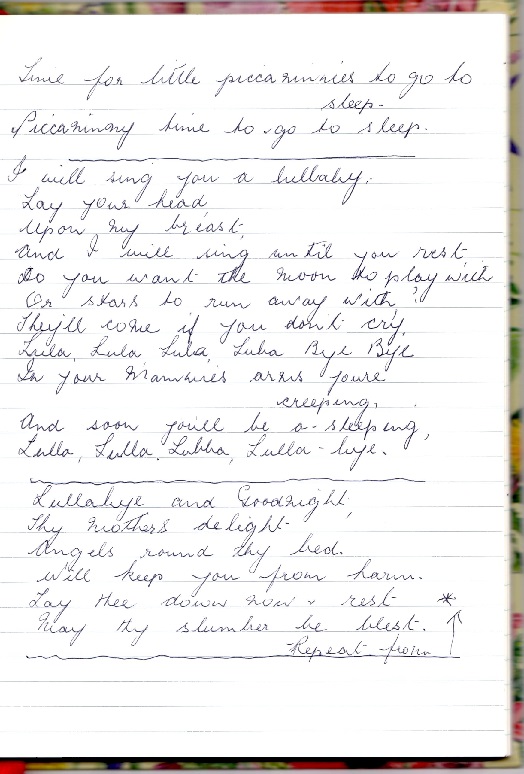 Time for little piccaninnies to go to
sleep.
Piccaninny time to go to sleep.
I will sing you a lullaby.
Lay your head,
Upon my breast,
And I will sing until you rest,
Do you want the moon to play with
Or stars to run away with?
They'll come if you don't cry,
Lula, Lula, Lula, Lula Bye Bye
In your Mammies arms youre
creeping,
And soon you'll be a-sleeping,
Lulla, Lulla, Lubba, Lulla-bye.
Lullabye and Goodnight,
Thy mothers delight
Angels round thy bed.
Will keep you from harm.
Lay thee down now & rest *
May thy slumber be blest.
Repeat from